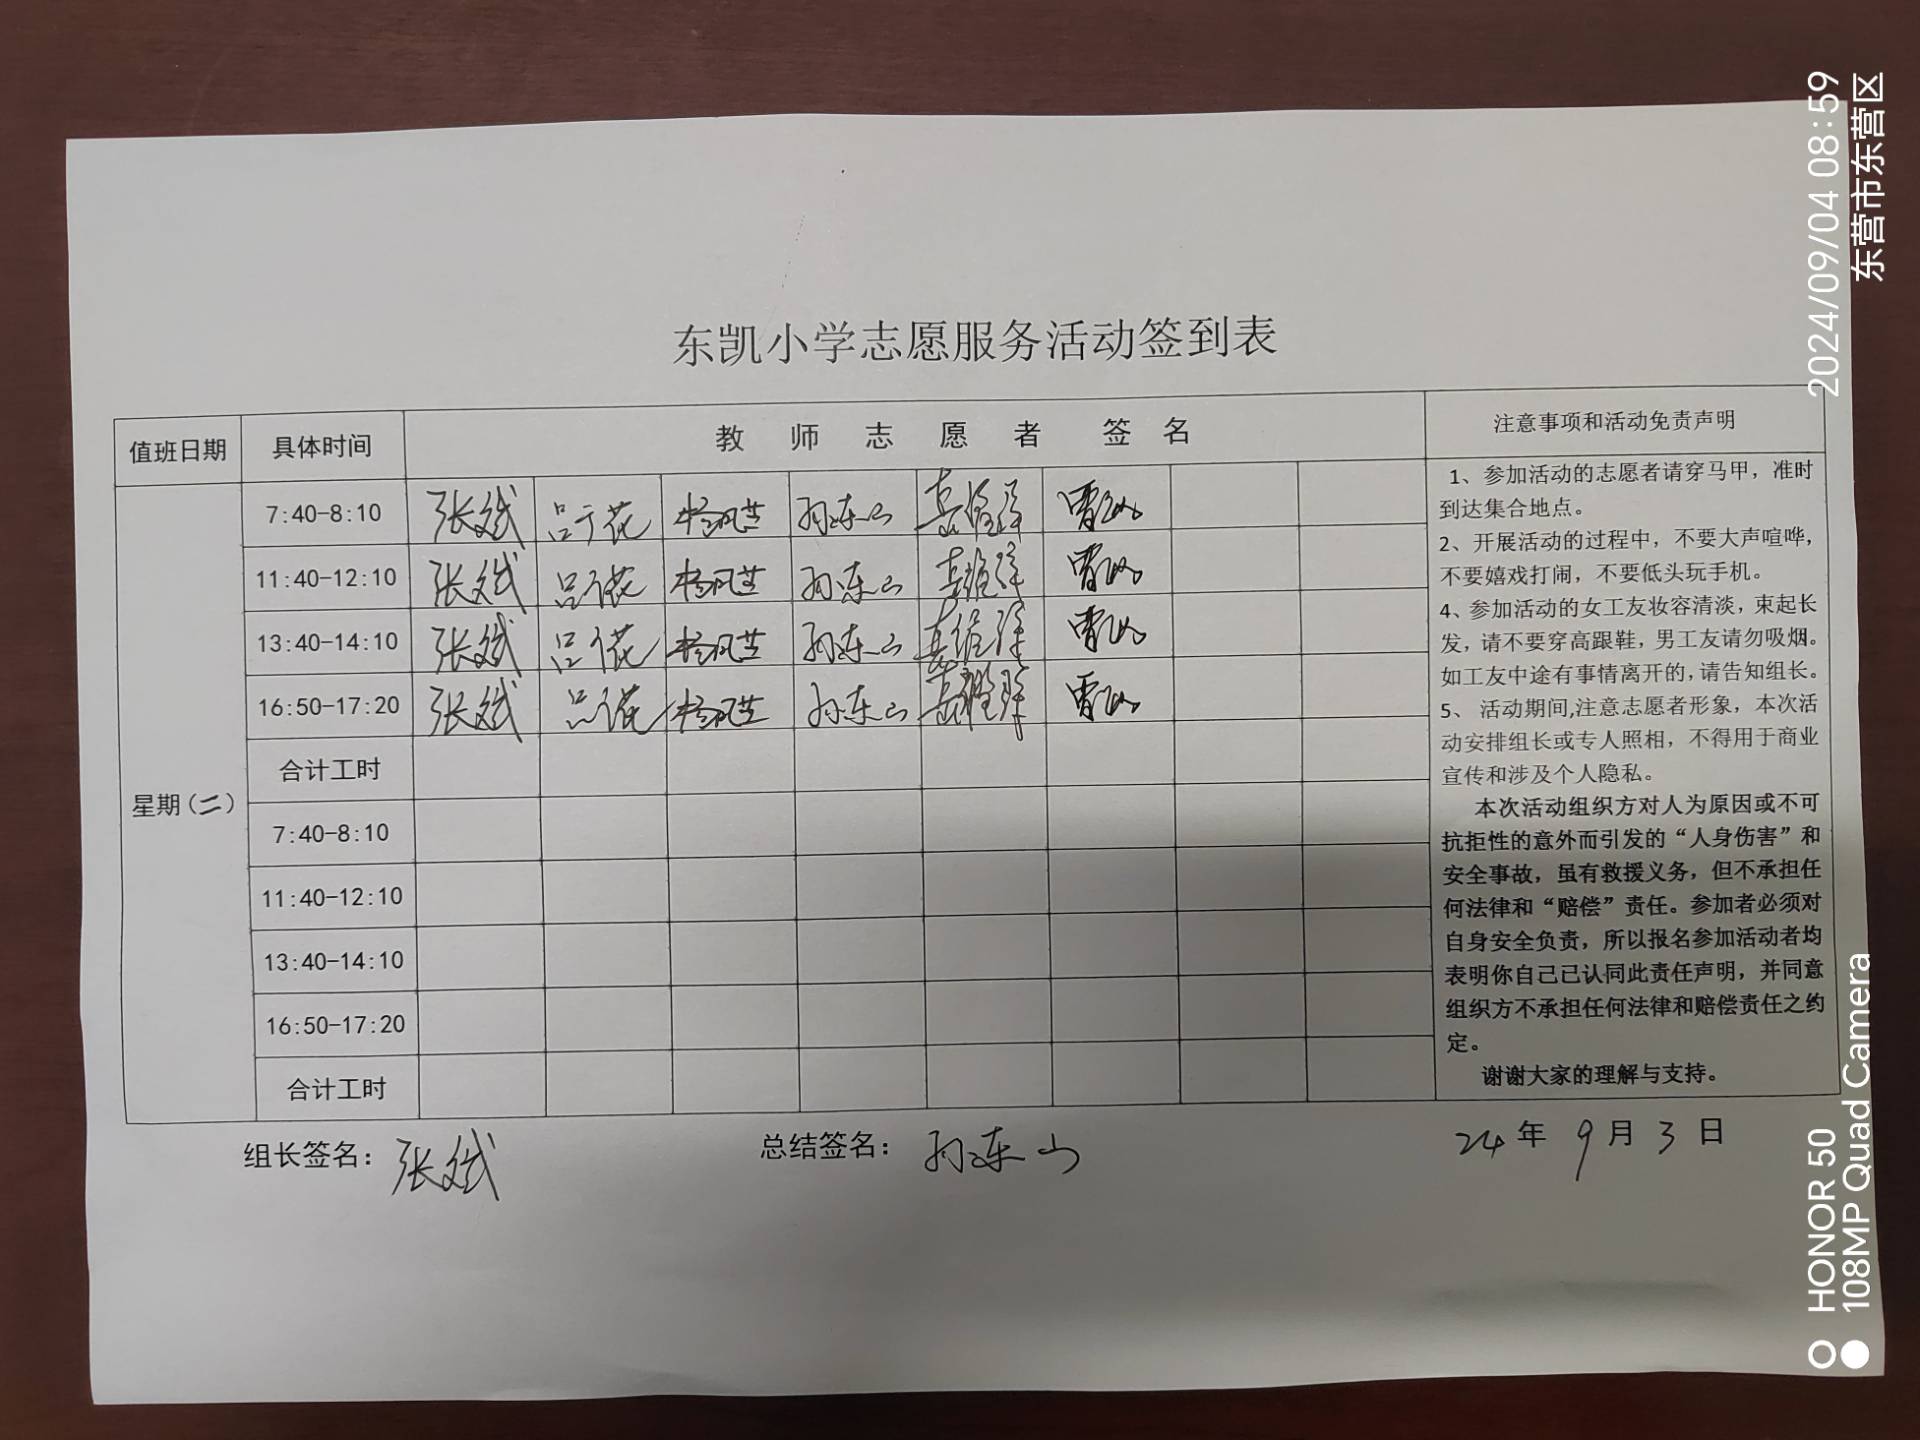 东凯小学志愿服务活动签到表
值班日期 具体时间 教 师 志 愿 者 签 名 注意事项和活动免责声明
星期(二)
7:40-8:10 张斌 吕于花 杨凤芝 孙东山
11:40-12:10 张斌 吕 花 杨凤芝 孙东山
13:40-14:10 张斌 吕 花 杨凤芝 孙东山
16:50-17:20 张斌 吕 花 杨凤芝 孙东山
合计工时
7:40-8:10
11:40-12:10
13:40-14:10
16:50-17:20
合计工时
1、参加活动的志愿者请穿马甲，准时
到达集合地点。
2、开展活动的过程中，不要大声喧哗，
不要嬉戏打闹，不要低头玩手机。
4、参加活动的女工友妆容清淡，束起长
发，请不要穿高跟鞋，男工友请勿吸烟。
如工友中途有事情离开的，请告知组长。
5、 活动期间,注意志愿者形象，本次活
动安排组长或专人照相，不得用于商业
宣传和涉及个人隐私。
本次活动组织方对人为原因或不可
抗拒性的意外而引发的“人身伤害”和
安全事故，虽有救援义务，但不承担任
何法律和“赔偿”责任。参加者必须对
自身安全负责，所以报名参加活动者均
表明你自己已认同此责任声明，并同意
组织方不承担任何法律和赔偿责任之约
定。
谢谢大家的理解与支持。
组长签名：张斌 总结签名：孙东山 24年9月3日
2024/09/04 08:59
东营市东营区
HONOR 50
108MP Quad Camera